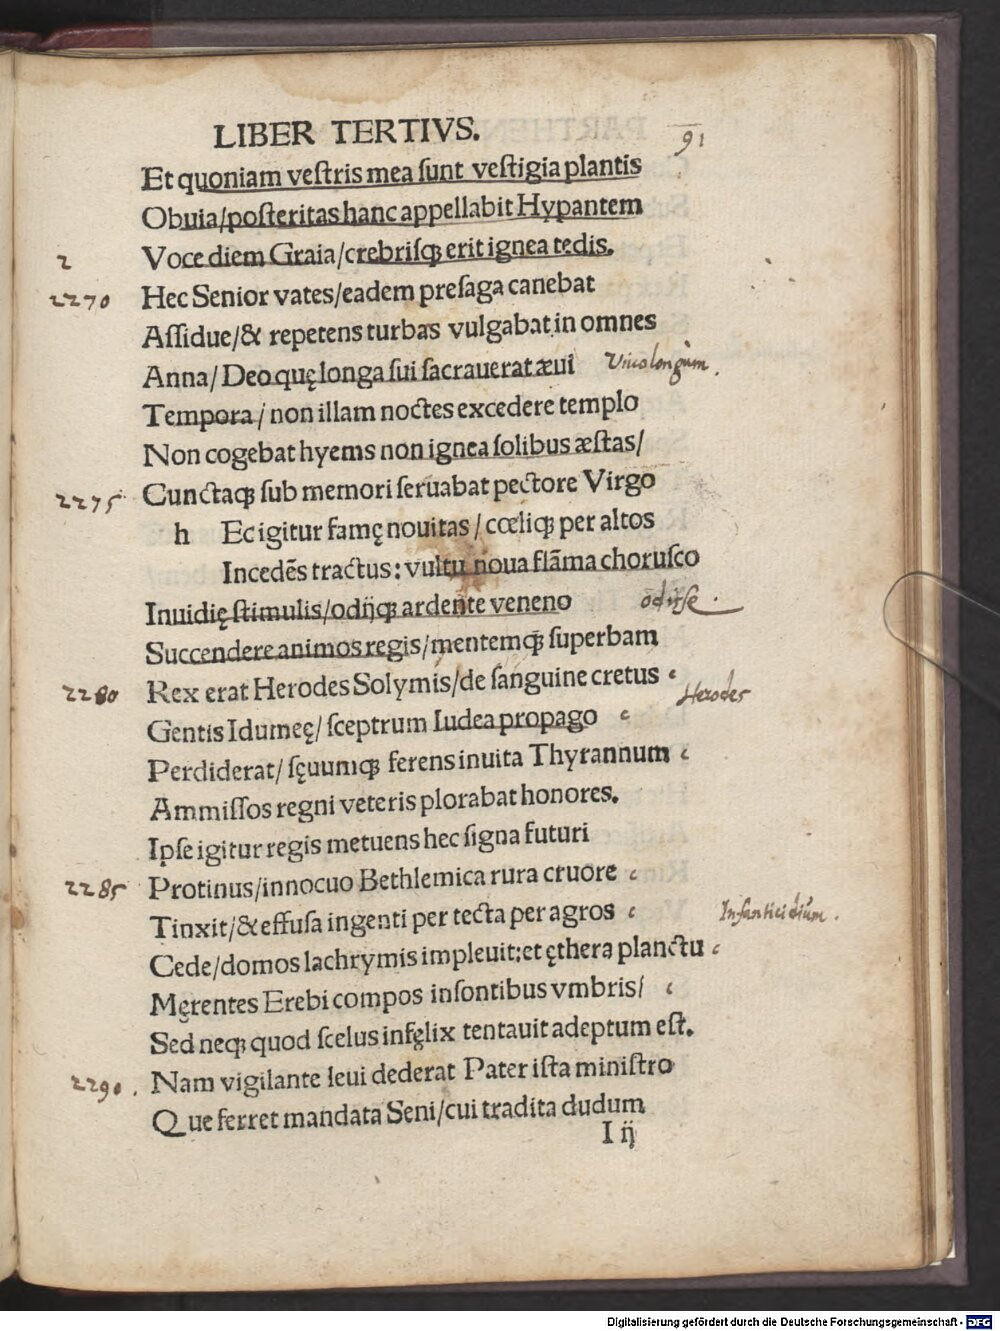 LIBER TERTIVS.
91
Et quoniam veſtris mea ſunt veſtigia plantis
Obuia/poſteritas hanc appellabit Hypantem
Voce diem Graia/crebriſqꝫ erit ignea tedis.
2
2270 Hec Senior vates/eadem preſaga canebat
Aſſidue/& repetens turbas vulgabat in omnes
Anna/Deo quę longa ſui ſacrauerat æui
Tempora/non illam noctes excedere templo
Non cogebat hyems non ignea ſolibus æſtas/
2275 Cunctaqꝫ ſub memori ſeruabat pectore Virgo
h Ec igitur famę nouitas/cœliqꝫ per altos
Incedẽs tractus: vultu noua flãma choruſco
Inuidię ſtimulis/odijqꝫ ardente veneno
Succendere animos regis/mentemqꝫ ſuperbam
2280 Rex erat Herodes Solymis/de ſanguine cretus Herodes
Gentis Idumeę/ſceptrum Iudea propago
Perdiderat/ſęuumqꝫ ferens inuita Thyrannum
Ammiſſos regni veteris plorabat honores.
Ipſe igitur regis metuens hec ſigna futuri
2285 Protinus/innocuo Bethlemica rura cruore
Tinxit/&effuſa ingenti per tecta per agros Infanticidium.
Cede/domos lachrymis impleuit:et ęthera planctu
Męrentes Erebi compos inſontibus vmbris/
Sed neqꝫ quod ſcelus infęlix tentauit adeptum eſt.
2290. Nam vigilante leui dederat Pater iſta miniſtro
Que ferret mandata Seni/cui tradita dudum
I ij
Digitalisierung gefördert durch die Deutsche Forschungsgemeinschaft - DFG